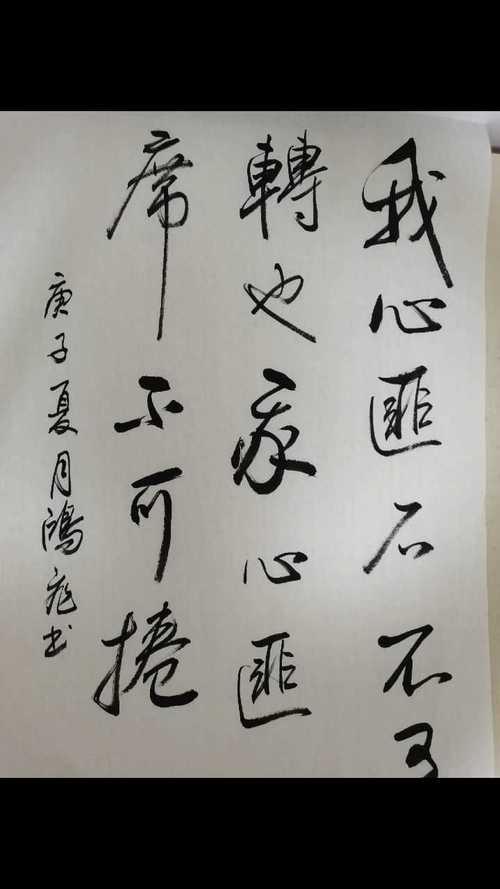 我心匪石不可
轉也我心匪
席不可捲
庚子夏月鴻書